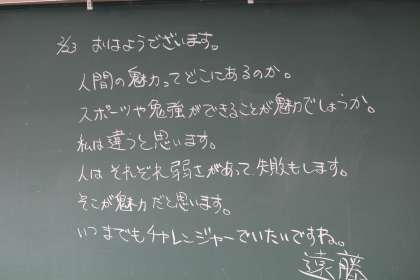 2/23 おはようございます。
人間の魅力ってどこにあるのか。
スポーツや勉強ができることが魅力でしょうか。
私は違うと思います。
人はそれぞれ弱さがあって失敗もします。
そこが魅力だと思います。
いつまでもチャレンジャーでいたいですね。
遠藤